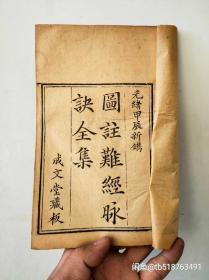 光緒甲辰新鐫
圖註難經脉
訣全集
成文堂藏板
闲鱼@tb518763491